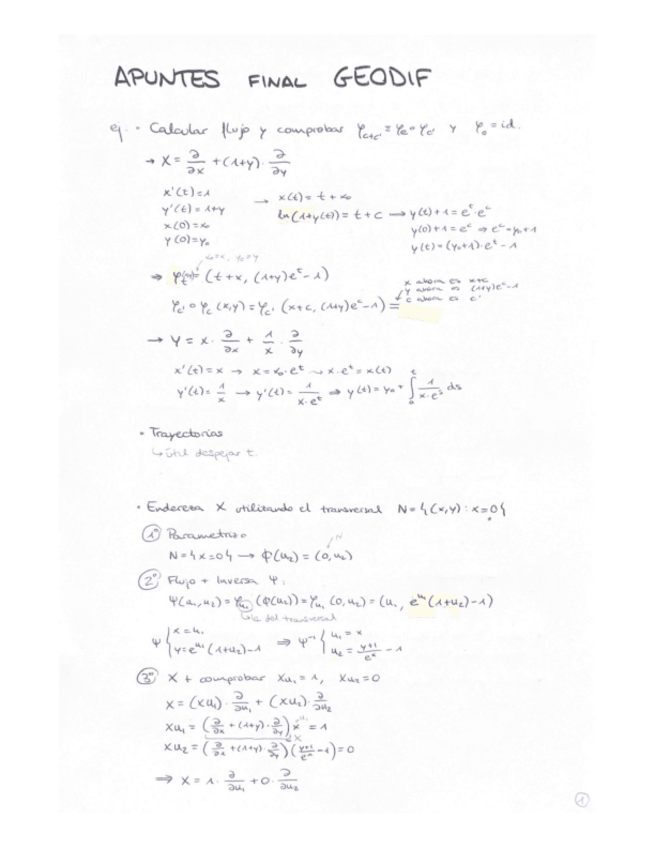 APUNTES FINAL GEODIF
ej: • Calcular flujo y comprobar φ_{c+c'} = φ_c ∘ φ_{c'} y φ_0 = id.
→ X = ∂/∂x + (1+y)·∂/∂y
x'(t)=1
y'(t)=1+y
x(0)=x₀
y(0)=y₀
→ x(t) = t + x₀
ln(1+y(t)) = t + c → y(t)+1 = e^t·e^c
y(0)+1 = e^c ⇒ e^c = y₀+1
y(t) = (y₀+1)·e^t − 1
x₀=x, y₀=y
⇒ φ_t = (t+x, (1+y)e^t − 1)
x ahora es x+c
y ahora es (1+y)e^c−1
c ahora es c'
φ_{c'} ∘ φ_c (x,y) = φ_{c'} (x+c, (1+y)e^c − 1) =
→ Y = x·∂/∂x + 1/x·∂/∂y
x'(t) = x → x = x₀·e^t ⤳ x·e^t = x(t)
y'(t) = 1/x → y'(t) = 1/(x·e^t) ⇒ y(t) = y₀ + ∫₀^t 1/(x·e^s) ds
• Trayectorias
↳ Útil despejar t.
• Endereza X utilizando el transversal N = {(x,y): x=0}
1º Parametrizo
N
N={x=0} → ϕ(u₂) = (0,u₂)
2º Flujo + Inversa Ψ:
Ψ(u₁,u₂) = φ_{u₁}(ϕ(u₂)) = φ_{u₁}(0,u₂) = (u₁, e^{u₁}(1+u₂)−1)
↳ la del transversal
Ψ { x = u₁ y = e^{u₁}(1+u₂)−1 ⇒ Ψ⁻¹ { u₁ = x u₂ = (y+1)/e^x − 1
3º X + comprobar Xu₁ = 1, Xu₂ = 0
X = (Xu₁)·∂/∂u₁ + (Xu₂)·∂/∂u₂
Xu₁ = (∂/∂x + (1+y)·∂/∂y) x = 1
X
Xu₂ = (∂/∂x + (1+y)·∂/∂y)((y+1)/e^x − 1) = 0
⇒ X = 1·∂/∂u₁ + 0·∂/∂u₂
1